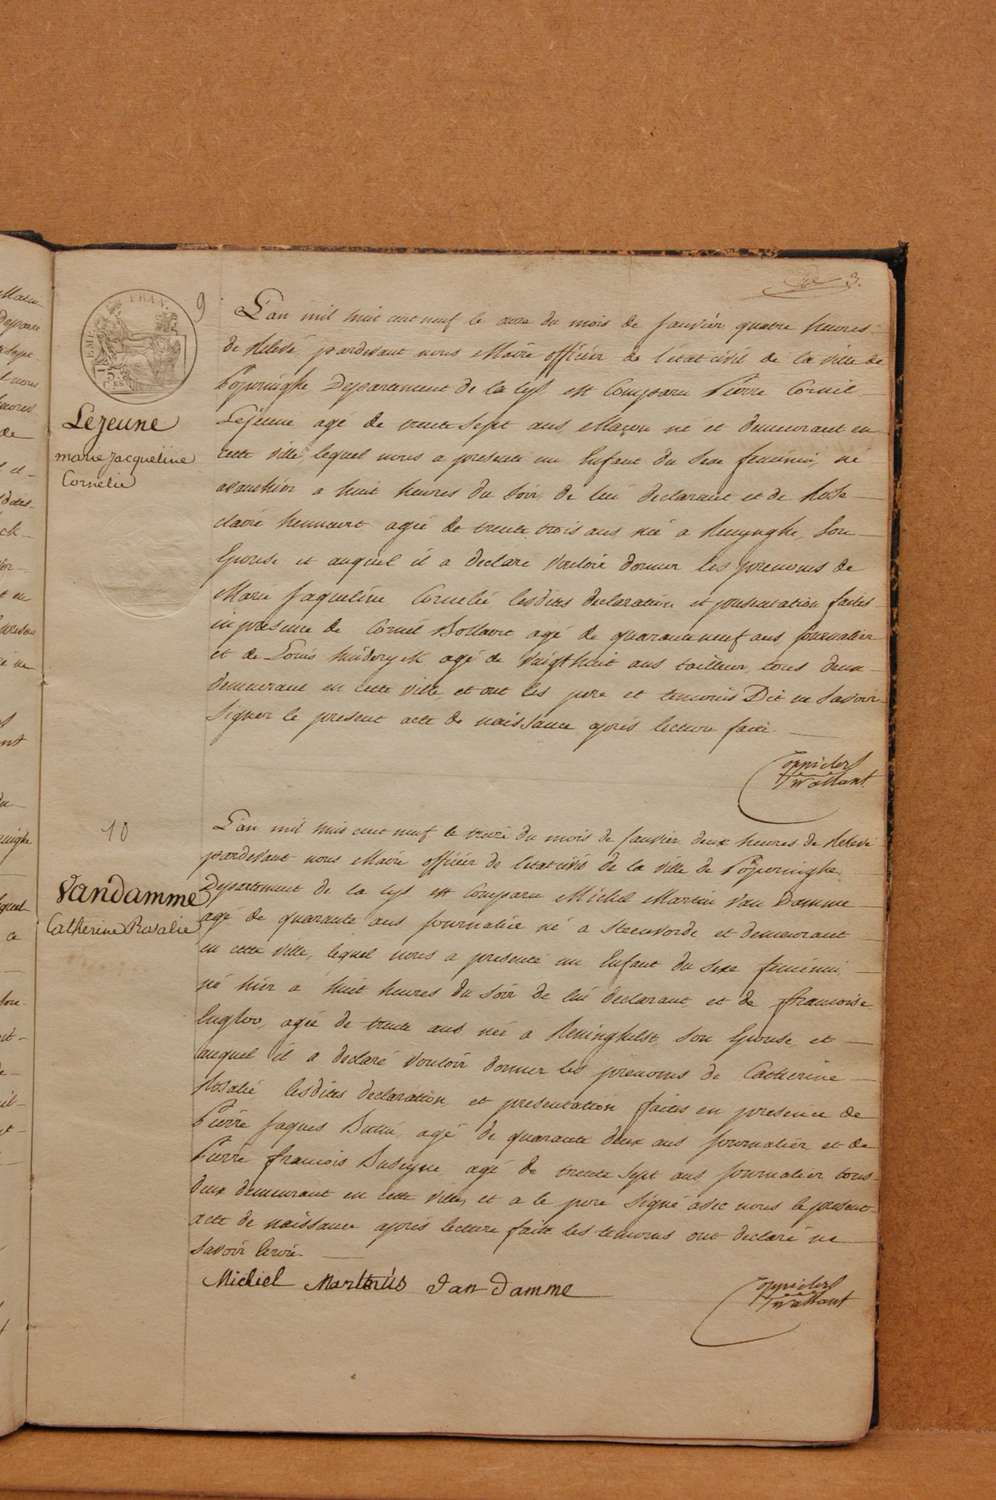 3.
9
L'an mil huit cent neuf le onze du mois de Janvier quatre heures
de Relevé pardevant nous Maire officier de l'état civil de la ville de
Poperinghe Departement de la Lys est Comparu Pierre Cornil
Lejeune agé de trente sept ans Maçon né et demeurant en
cette ville lequel nous a presenté un Enfant du Sexe feminin né
avanthier a huit heures du Soir de lui declarant et de Rose
claire agée de trente trois ans née a Son
Epouse et auquel il a declaré vouloir donner les prenoms de
Marie Jaqueline Cornelie lesdites declaration et presentation faites
en presence de Cornil Bollaert agé de quaranteneuf ans Journalier
et de Louis agé de Vingthuit ans tailleur tous deux
demeurant en cette ville et ont les pere et temoins Dit ne Savoir
Signer le present acte de naissance après lecture faite
Lejeune
marie jacqueline
Cornelie
10
L'an mil huit cent neuf le treize du mois de Janvier deux heures de Relevé
pardevant nous Maire officier de l'état civil de la ville de Poperinghe
Departement de la Lys est Comparu Michel Martin Van Damme
agé de quarante ans Journalier né a Steenvorde et demeurant
en cette ville, lequel nous a presenté un Enfant du Sexe feminin
né hier a huit heures du Soir de lui declarant et de francoise
agée de trente ans née a Reninghelst Son Epouse et
auquel il a declaré vouloir donner les prenoms de Catherine
Rosalie lesdites declaration et presentation faites en presence de
Pierre Jaques agé de quarante deux ans Journalier et de
Pierre francois agé de trente Sept ans Journalier tous
deux demeurant en cette ville, et a le pere Signé avec nous le present
acte de naissance après lecture faite les temoins ont declaré ne
Savoir
Vandamme
Catherine Rosalie
Michiel Martinus Van Damme